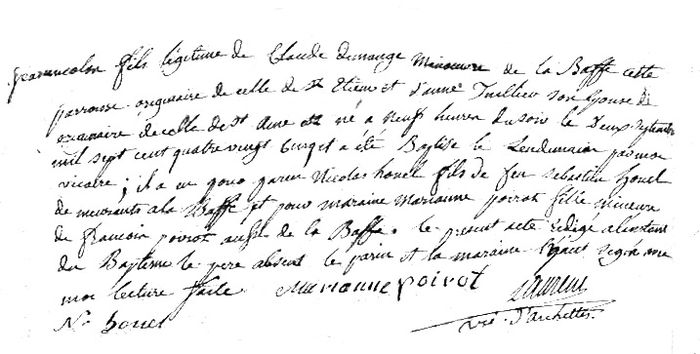 jeannicolas fils légitime de Claude Demange Manoeuvre de la Baffe cette
parroisse originaire de celle de St Etienne et d'anne Tuillier son épouse
originaire de celle de St Ame est né a neuf heures du soir le Deux Septembre
mil sept cent quatre vingt et a été Baptisé le Lendemain par moi
vicaire; il a eu pour parin Nicolas houel fils de feu Sebastien houel
demeurants a la Baffe et pour maraine Marianne poirot fille mineure
de francois poirot aussi de la Baffe. le present acte rédigé a l'instant
du Baptême le pere absent le parin et la maraine signé avec
moi lecture faite. Marianne poirot Laurent
N. houel vic. d'archettes.